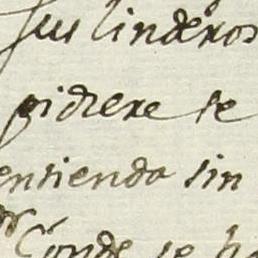 sus linderos
pidiere se
entienda sin
Conde se ha